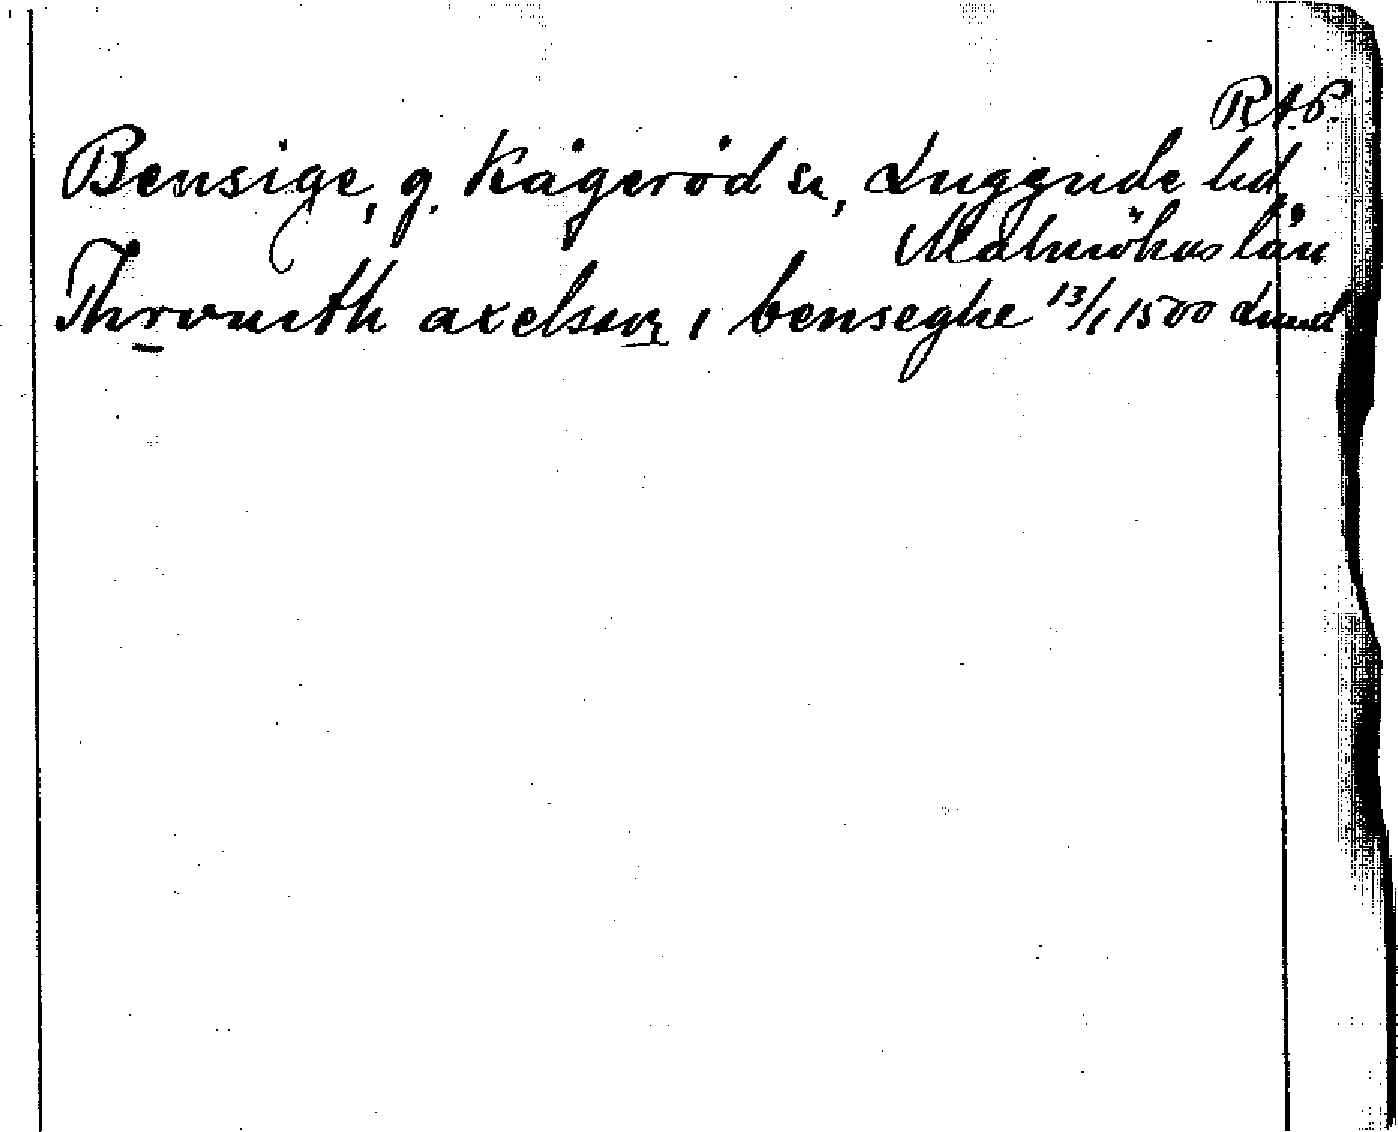 RAP.
Bensige, g. Kågeröd sn, Luggude hd,
Malmöhus län
Throwith axelsøn i benseghe 13/1 1500 Lund